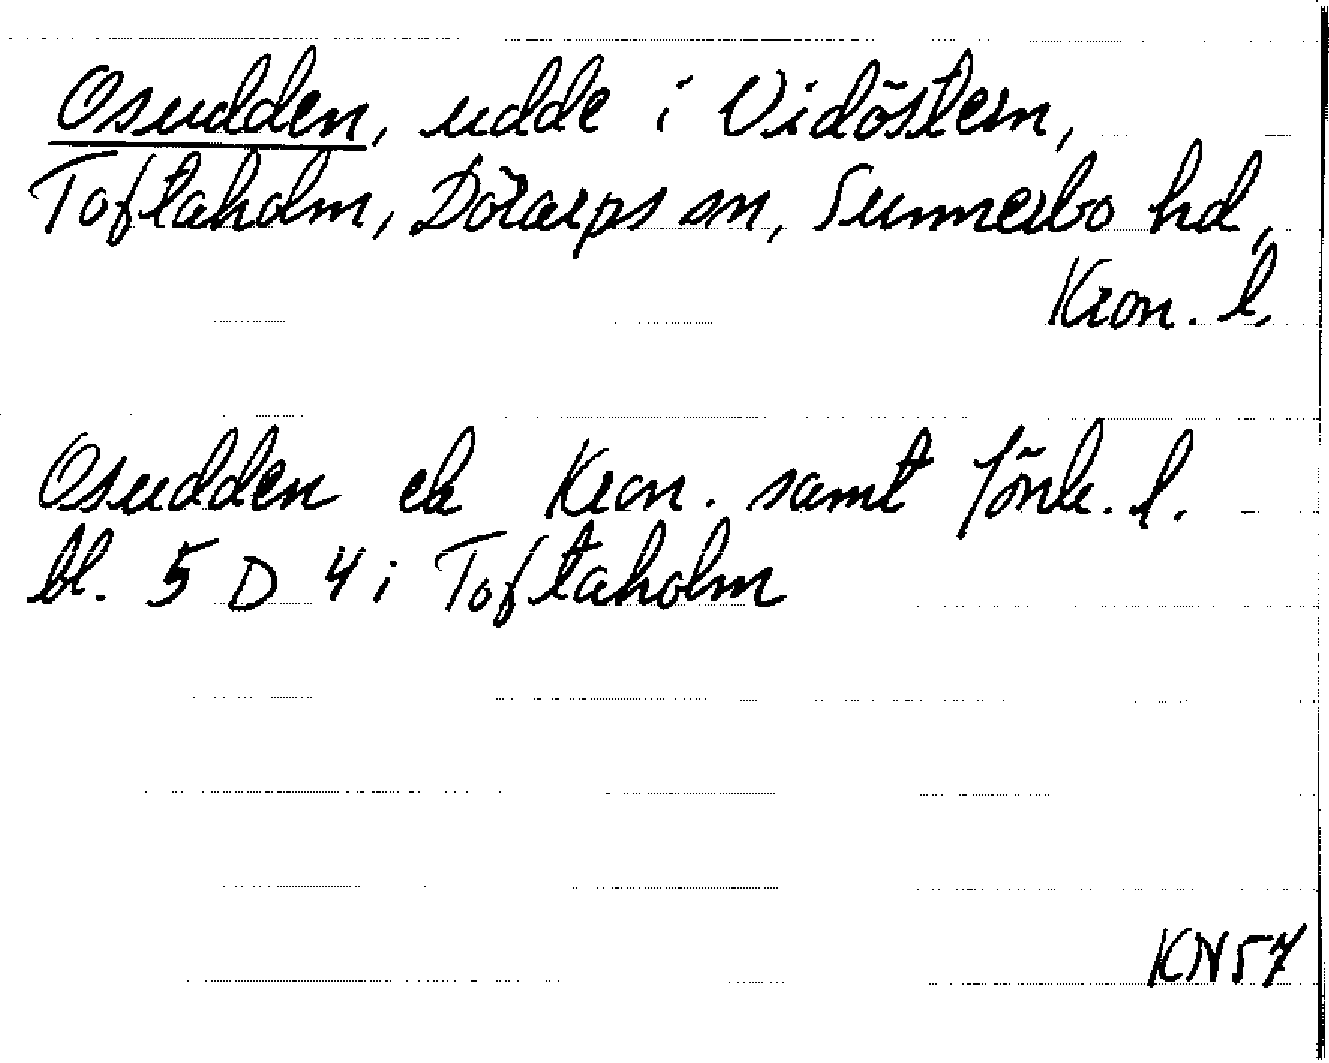 Osudden, udde i Vidöstern,
Toftaholm, Dörarps sn, Sunnerbo hd,
Kron. l.
Osudden ek Kron. samt Jönk. l.
bl. 5 D 4 i Toftaholm
KN57